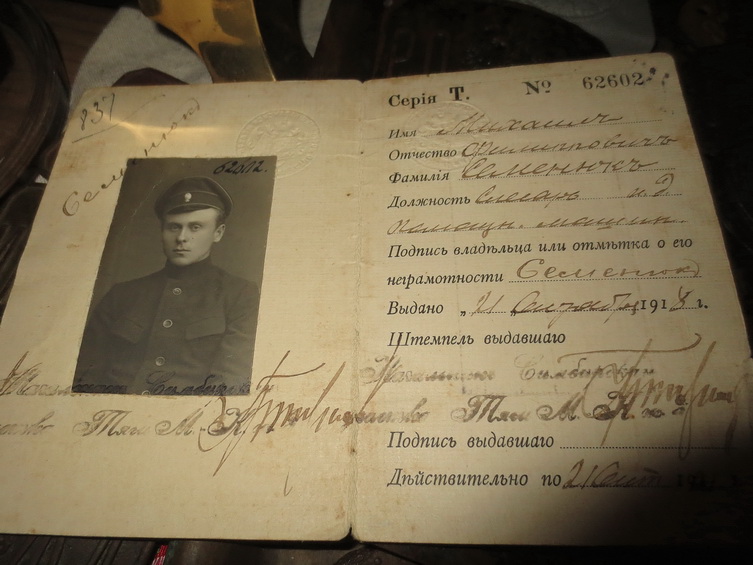 837
Семенюк
62602.
Серія Т. № 62602
Имя Михаилъ
Отчество Филипповичъ
Фамилія Семенюкъ
Должность Слесарь и. д.
помощн. машин.
Подпись владѣльца или отмѣтка о его
неграмотности Семенюк
Выдано „21 Октября 1918 г.
Штемпель выдавшаго
Начальникъ Симбирск
Тяги М.
Подпись выдавшаго
Дѣйствительно по 21 Окт 19